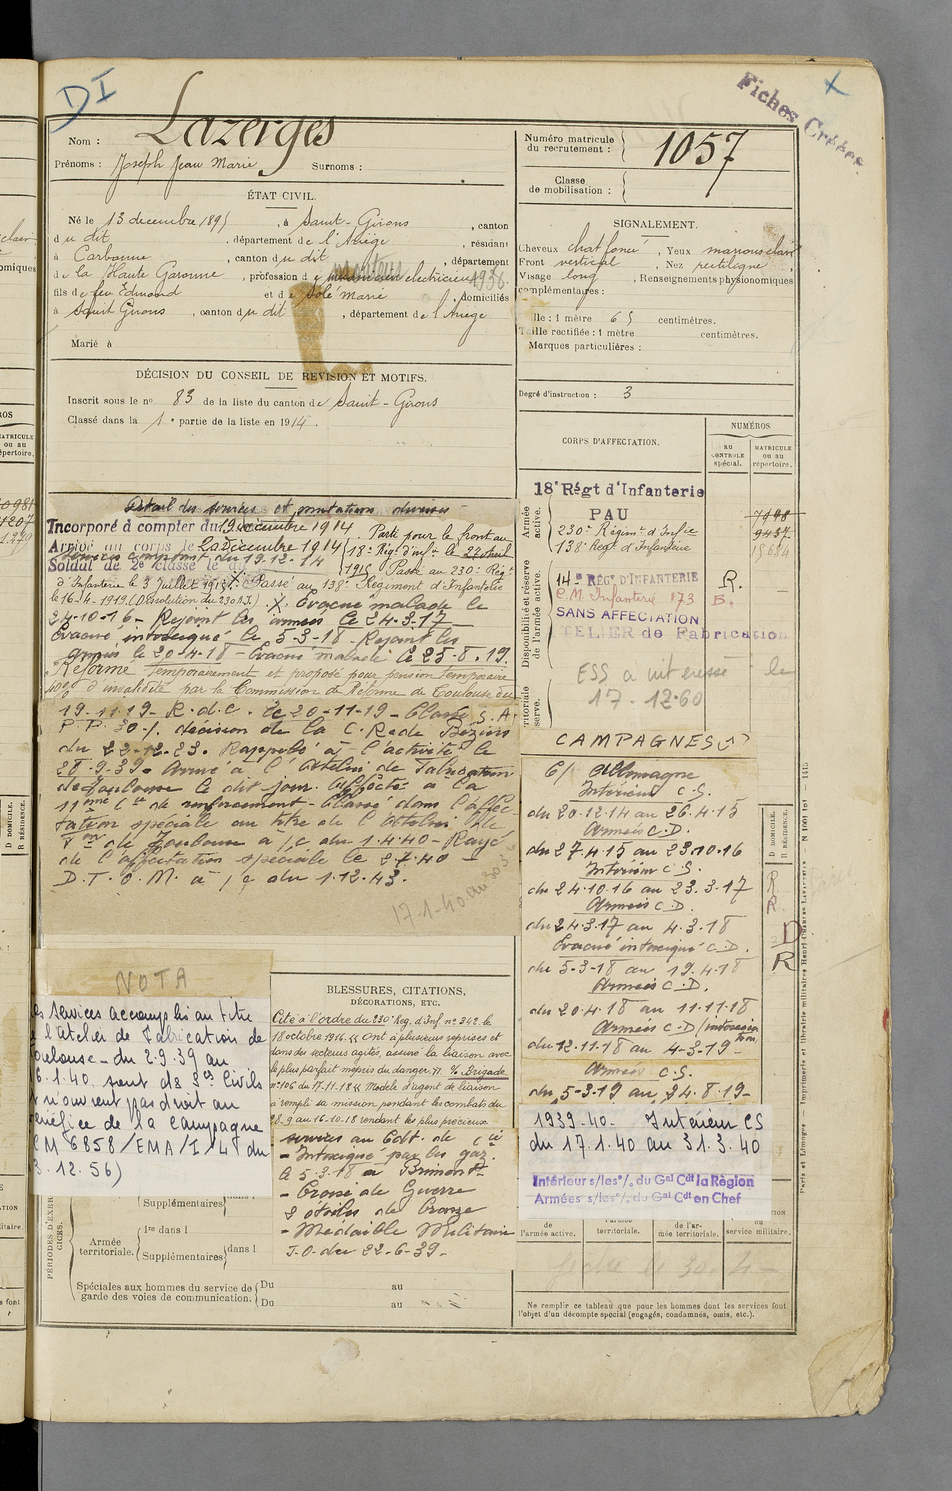 DI
Fiches Créées
Nom : Lazerges
Prénoms : Joseph Jean Marie Surnoms :
Numéro matricule du recrutement : 1057
Classe de mobilisation :
ÉTAT CIVIL.
Né le 13 décembre 1895, à Saint-Girons, canton
du dit, département de l'Ariège, résidant
à Carbonne, canton du dit, département
de la Haute Garonne, profession de monteur electricien 1936.
fils de feu Edmond et de Solé Marie, domiciliés
à Saint Girons, canton du dit, département de l'Ariège
Marié à
SIGNALEMENT.
Cheveux chat foncé, Yeux marrons clair
Front vertical, Nez rectiligne
Visage long, Renseignements physionomiques
complémentaires :
Taille : 1 mètre 65 centimètres.
Taille rectifiée : 1 mètre centimètres.
Marques particulières :
Degré d'instruction : 3
DÉCISION DU CONSEIL DE REVISION ET MOTIFS.
Inscrit sous le no 83 de la liste du canton de Saint-Girons
Classé dans la 1e partie de la liste en 1914.
CORPS D'AFFECTATION.
NUMÉROS
au CONTRÔLE spécial.
MATRICULE ou au répertoire.
Armée active.
18e Régt d'Infanterie
PAU
230e Régimt d'Infie 9437
138e Regt d'Infanterie
Disponibilité et réserve de l'armée active.
14e RÉGt D'INFANTERIE R.
C.M Infanterie 173 B.
SANS AFFECTATION
ATELIER de Fabrication
ESS à intéressé le
17-12-60
Détail des services et mutations diverses
Incorporé à compter du 19 décembre 1914
Arrivé au corps le 20 Décembre 1914
Services comptent du 19-12-14
Soldat de 2e classe le dit
Parti pour le front au 18e Régt d'inf. le 27 avril 1915
Passé au 230e Régt
d'Infanterie le 3 Juillet 1915. X. Passé au 138e Régiment d'Infanterie
le 16-4-1919 (Dissolution du 230 R.I.) X. Evacué malade le
24-10-16 - Rejoint les armées le 24-3-17 -
Evacué intoxiqué le 5-3-18 - Rejoint les
armées le 20-4-18 - Evacué malade le 25.8.19.
Réformé temporairement et proposé pour pension temporaire
10% d'invalidité par la Commission de Réforme de Toulouse du
19-11-19 - R.d.c. le 20-11-19 - Classé S.A.
P.P. 30% décision de la C.R de Béziers
du 22-12-23. Rappelé à l'activité le
28-9-39. Arrivé à l'Atelier de Fabrication
de Toulouse le dit jour. Affecté à la
11ème Cie de renforcement - Classé dans l'affec-
tation spéciale au titre de l'Atelier de
Fon de Toulouse à /c du 1.4.40 - Rayé
de l'affectation spéciale le 2-7-40 -
D.T.O.M. à /c du 1.12.43.
17-1-40 au 30 3
CAMPAGNES
C/ Allemagne
Intérieur C.S.
du 20.12.14 au 26.4.15
Armées C.D.
du 27.4.15 au 23.10.16
Intérieur C.S.
du 24.10.16 au 23.3.17
Armées C.D.
du 24.3.17 au 4.3.18
Evacué intoxiqué C.D.
du 5-3-18 au 19.4.18
Armées C.D.
du 20.4.18 au 11.11.18
Armées C.D (intoxication
du 12.11.18 au 4-3-19 -
Armées C.S.
du 5-3-19 au 24.8.19 -
1939-40 - Intérieur CS
du 17.1.40 au 31.3.40
Intérieur s/les °/. du Gal Cdt la Région
Armées s/les °/. du Gal Cdt en Chef
D DOMICILE.
R RÉSIDENCE.
R
R
D
R
NOTA
Les services accomplis au titre
de l'Atelier de Fabrication de
Toulouse - du 2.9.39 au
16.1.40 sont des Ses Civils
& n'ouvrent pas droit au
bénéfice de la campagne
(CM 6858/EMA/I/L du
3.12.56)
BLESSURES, CITATIONS,
DÉCORATIONS, ETC.
Cité à l'ordre du 230e Reg. d'Inf. no 342 le
18 octobre 1916. « Ont à plusieurs reprises et
dans des secteurs agités, assuré la liaison avec
le plus parfait mépris du danger. » % Brigade
no 106 du 17.11.18 « Modèle d'agent de liaison
a rempli sa mission pendant les combats du
28.9 au 16-10-18 rendant les plus précieux
services au Cdt. de Cie
- Intoxiqué par les gaz.
le 5.3.18 à Brimont
- Croix de Guerre
2 étoiles de Bronze
- Médaille Militaire
J.O. du 22-6-39 -
PÉRIODES D'EXERCICES.
Supplémentaires
Armée territoriale.
1re dans l
Supplémentaires dans l
Spéciales aux hommes du service de garde des voies de communication.
Du au
Du au
de l'armée active.
l'armée territoriale.
de l'armée territoriale.
du service militaire.
fiche le 30-4-
Ne remplir ce tableau que pour les hommes dont les services font
l'objet d'un décompte spécial (engagés, condamnés, omis, etc.).
Paris et Limoges — Imprimerie et librairie militaires Henri Charles-Lavauzelle